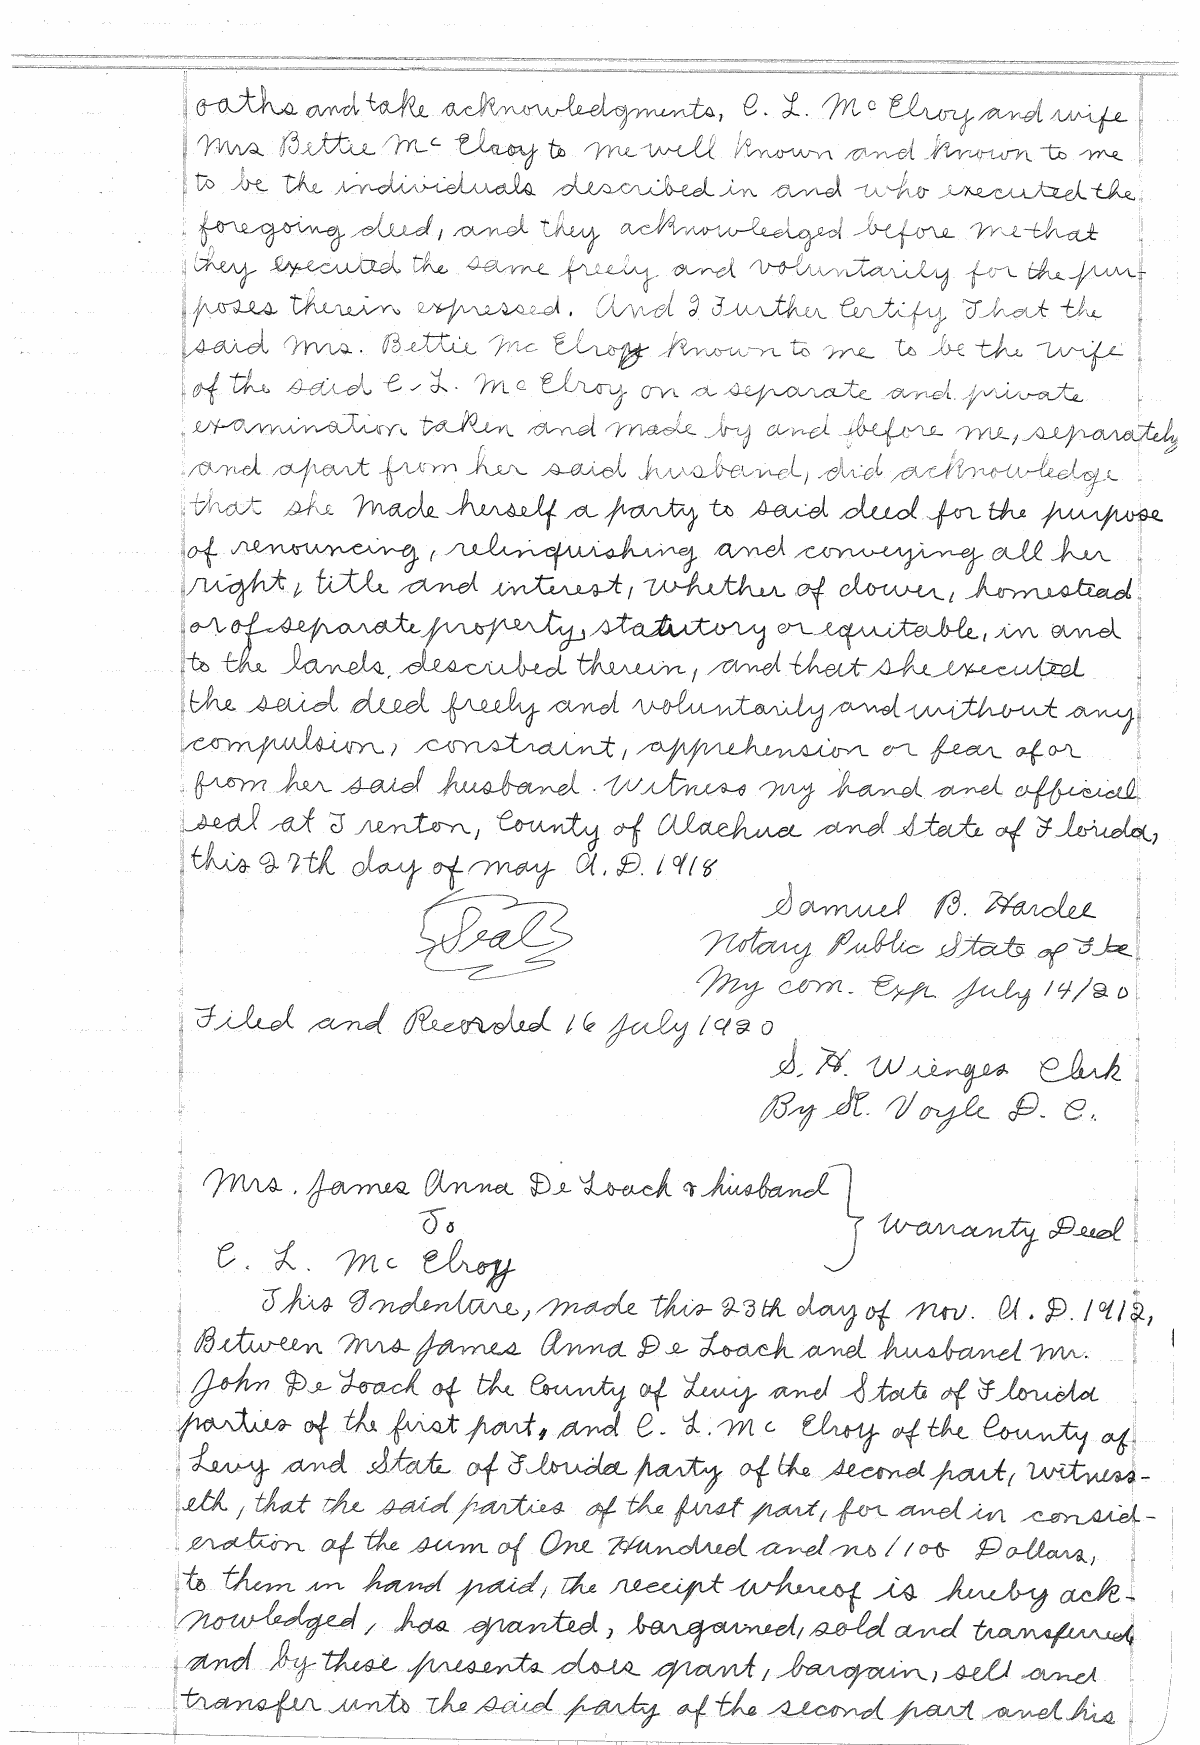 oaths and take acknowledgments, C. L. Mc Elroy and wife
Mrs Bettie Mc Elroy to me well known and known to me
to be the individuals described in and who executed the
foregoing deed, and they acknowledged before me that
they executed the same freely and voluntarily for the pur-
poses therein expressed. And I Further Certify That the
said Mrs. Bettie Mc Elroy known to me to be the wife
of the said C. L. Mc Elroy on a separate and private
examination taken and made by and before me, separately
and apart from her said husband, did acknowledge
that she made herself a party to said deed for the purpose
of renouncing, relinquishing and conveying all her
right, title and interest, whether of dower, homestead
or of separate property, statutory or equitable, in and
to the lands described therein, and that she executed
the said deed freely and voluntarily and without any
compulsion, constraint, apprehension or fear of or
from her said husband. Witness my hand and official
seal at Trenton, County of Alachua and State of Florida,
this 27th day of may A. D. 1918
Samuel B. Hardee
Seal
Notary Public State of Fla
My com. Exp. July 14/20
Filed and Recorded 16 July 1920
S. H. Wienges Clerk
By R. Voyle D. C.
Mrs. James Anna De Loach & husband
To
Warranty Deed
C. L. Mc Elroy
This Indenture, made this 23th day of Nov. A. D. 1912,
Between Mrs James Anna De Loach and husband Mr.
John De Loach of the County of Levy and State of Florida
parties of the first part, and C. L. Mc Elroy of the County of
Levy and State of Florida party of the second part, witness-
eth, that the said parties of the first part, for and in consid-
eration of the sum of One Hundred and no/100 Dollars,
to them in hand paid, the receipt whereof is hereby ack-
nowledged, has granted, bargained, sold and transferred
and by these presents does grant, bargain, sell and
transfer unto the said party of the second part and his